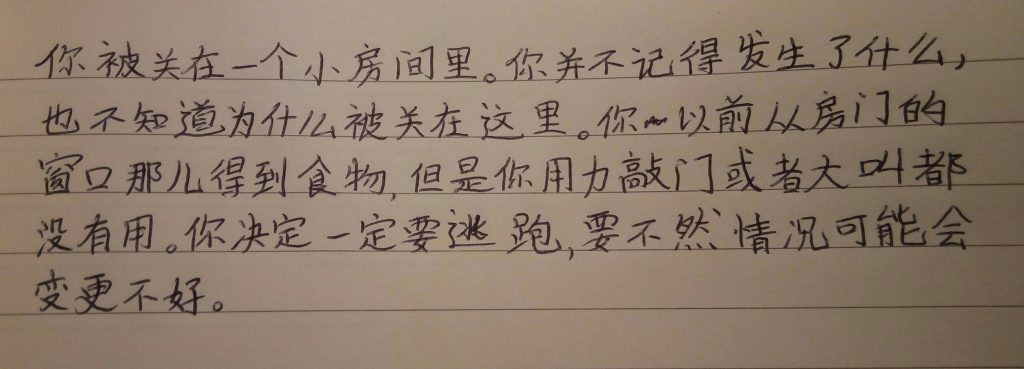 你被关在一个小房间里。你并不记得发生了什么,
也不知道为什么被关在这里。你以前从房门的
窗口那儿得到食物,但是你用力敲门或者大叫都
没有用。你决定一定要逃跑,要不然情况可能会
变更不好。